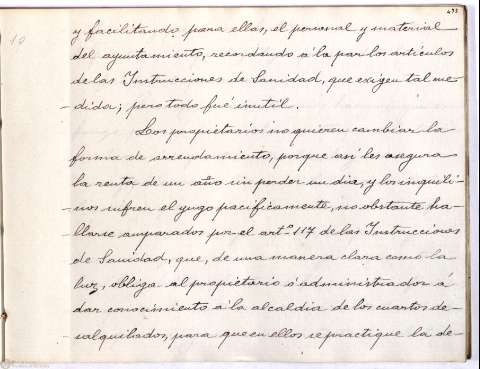 10
y facilitando para ellas, el personal y material
del ayuntamiento, recordando á la par los artículos
de las Instrucciones de Sanidad, que exigen tal me-
-dida; pero todo fué inutil.
Los propietarios no quieren cambiar la
forma de arrendamiento, porque así les asegura
la renta de un año sin perder un dia, y los inquili-
-nos sufren el yugo pacificamente, no obstante ha-
-llarse amparados por el artº 117 de las Instrucciones
de Sanidad, que, de una manera clara como la
luz, obliga al propietario ó administrador á
dar conocimiento á la alcaldia de los cuartos de-
-salquilados, para que en ellos se practique la de-